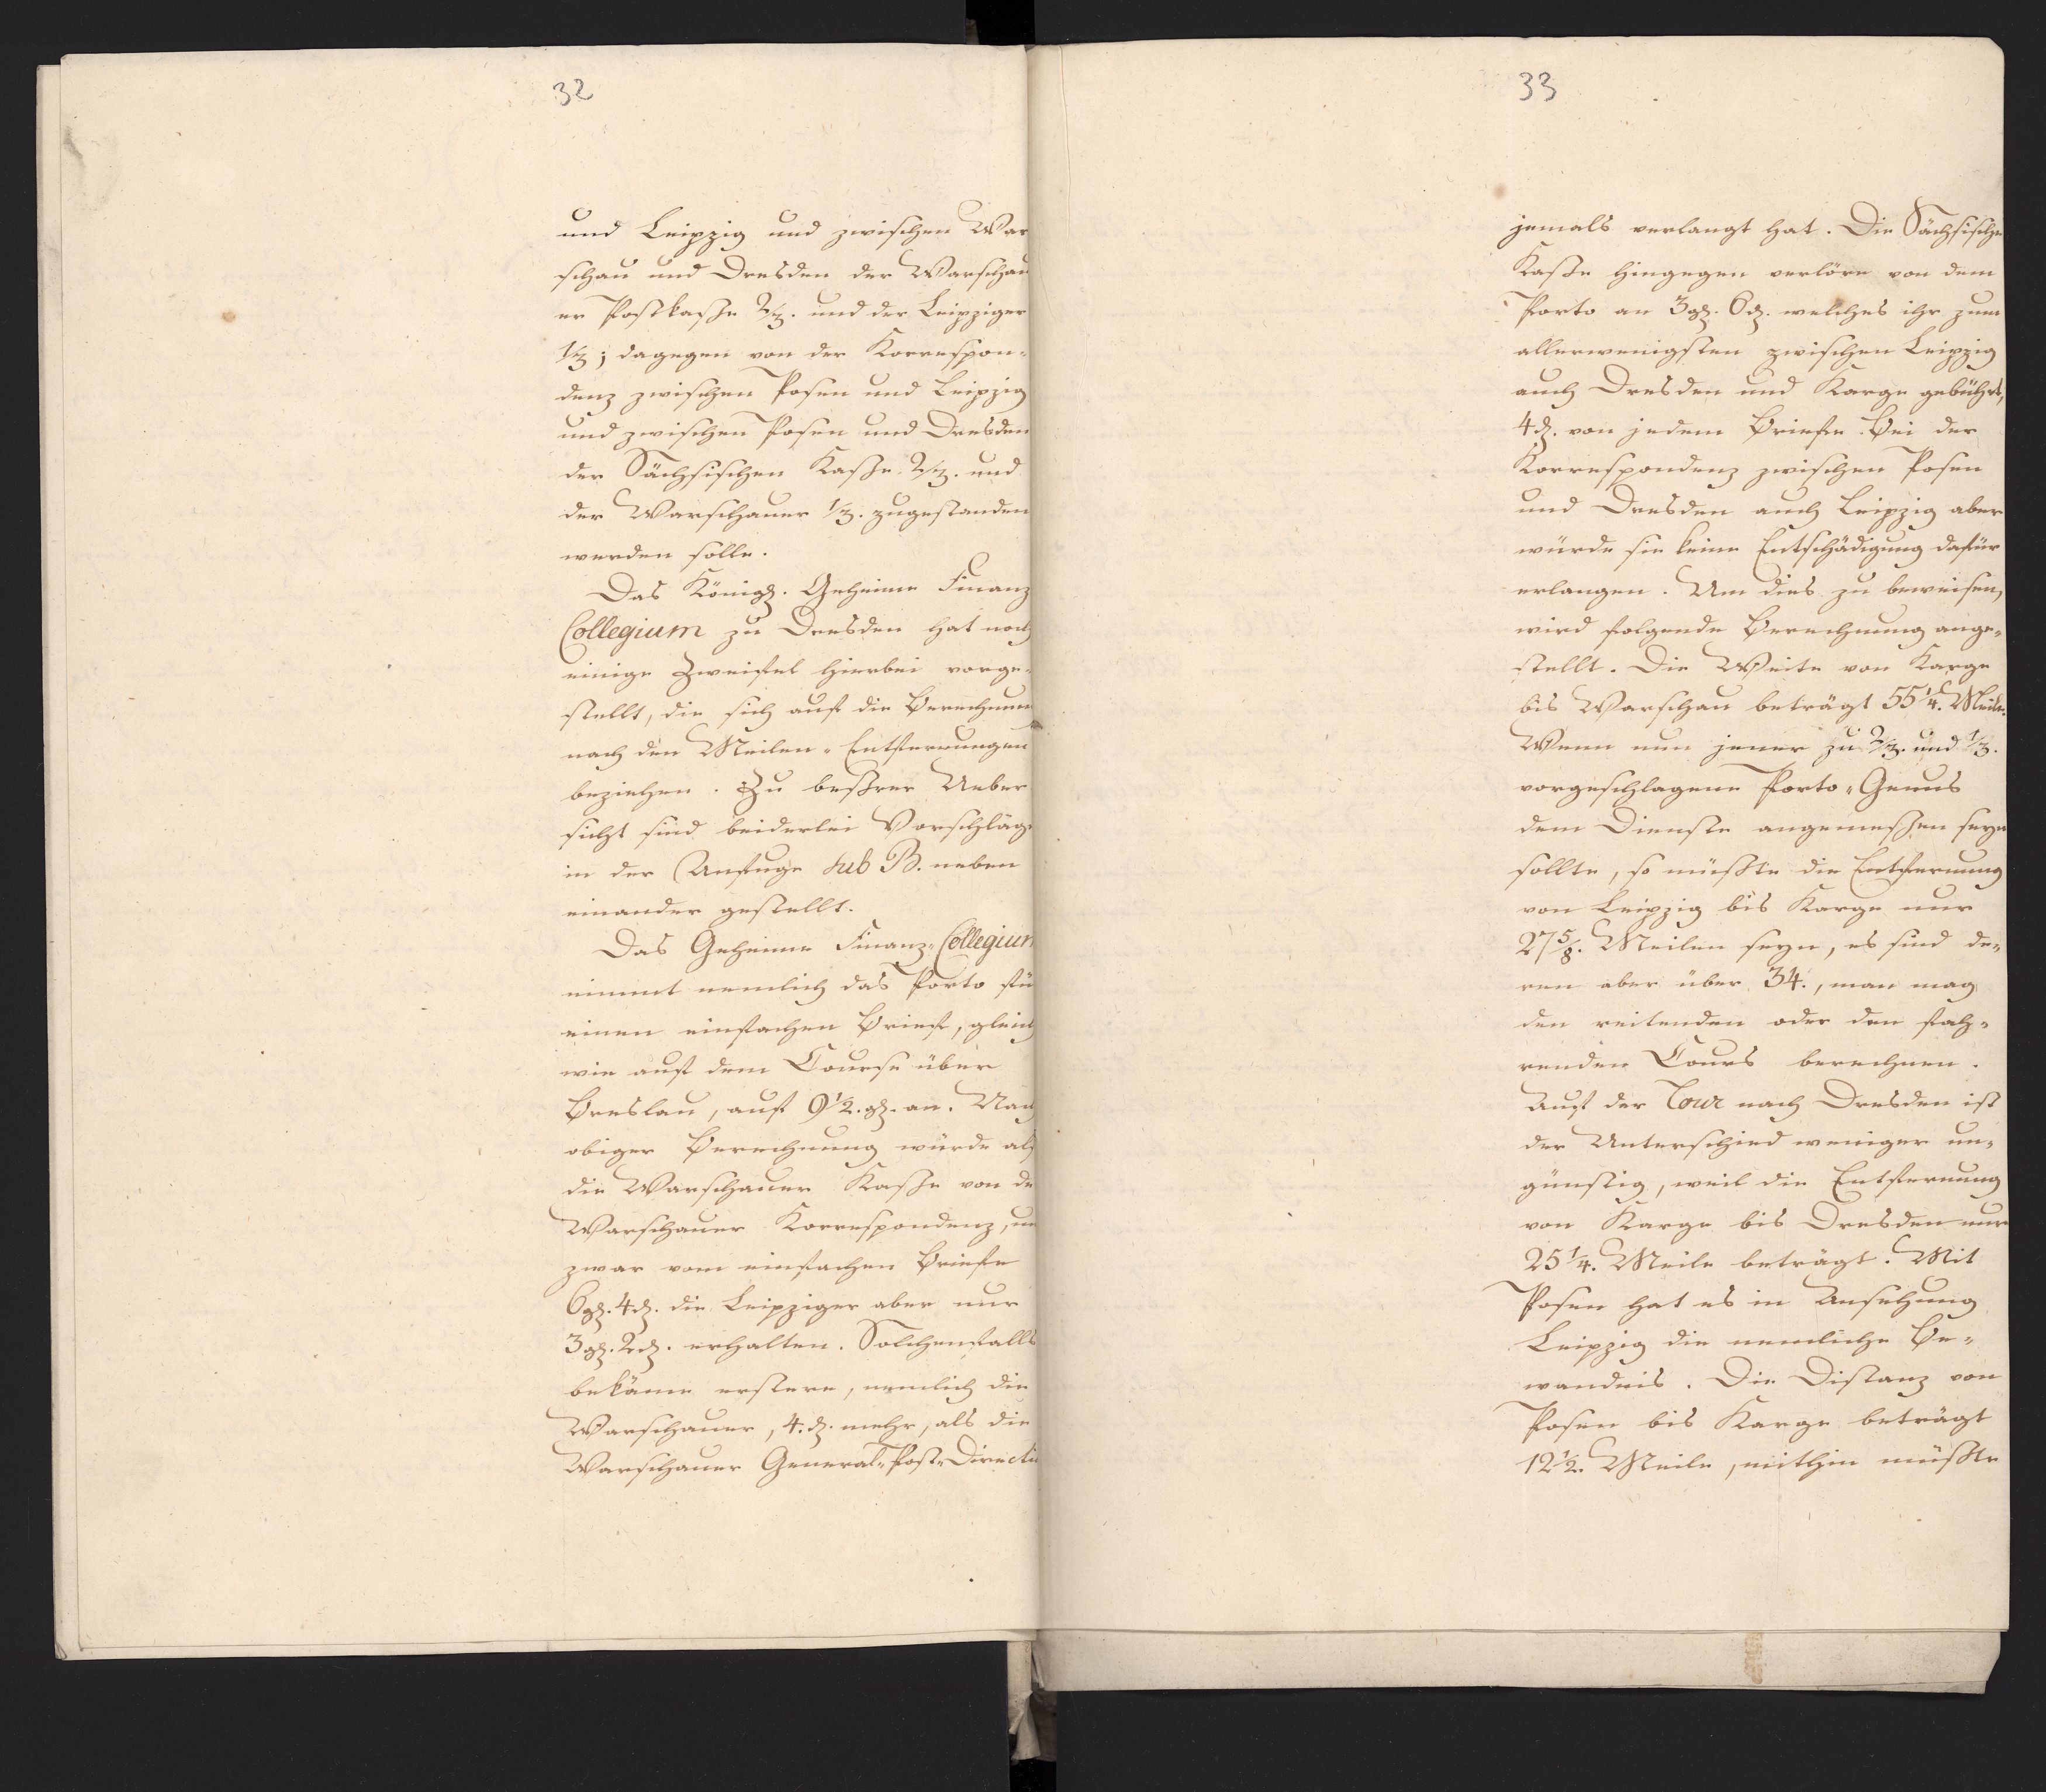 32
und Leipzig und zwischen War
schau und Dresden der Warschau
er Postkaße 2/3. und der Leipziger
1/3; dagegen von der Korrespon-
denz zwischen Posen und Leipzig
und zwischen Posen und Dresden
der Sächsischen Kaße 2/3. und
der Warschauer 1/3. zugestanden
werden solle.
Das Königl. Geheime Finanz
Collegium zu Dresden hat noch
einige Zweifel hierbei vorge-
stellt, die sich auf die Berechnun
nach den Meilen-Entfernungen
beziehen. Zu beßrer Ueber
sicht sind beiderlei Vorschläge
in der Anfuge sub B. neben
einander gestellt.
Das Geheime Finanz-Collegium
nimmt nemlich das Porto fü
einen einfachen Brief, gleich
wie auf dem Course über
Breslau, auf 9 1/2. gl. an. Nach
obiger Berechnung würde als
die Warschauer Kaße von de
Warschauer Korrespondenz, un
zwar vom einfachen Briefe
6 gl. 4 d. die Leipziger aber nur
3 gl. 2 d. erhalten. Solchenfalls
bekäme erstere, nemlich die
Warschauer, 4. d. mehr, als die
Warschauer General-Post-Directi
33
jemals verlangt hat. Die Sächsische
Kaße hingegen verlöre von dem
Porto an 3 gl. 6 d. welches ihr zum
allerwenigsten zwischen Leipzig
auch Dresden und Karge gebührt,
4 d. von jedem Briefe. Bei der
Korrespondenz zwischen Posen
und Dresden auch Leipzig aber
würde sie keine Entschädigung dafür
erlangen. Um dies zu beweisen,
wird folgende Berechnung ange-
stellt. Die Weite von Karge
bis Warschau beträgt 55 1/4. Meile.
Wenn nun jener zu 2/3. und 1/3.
vorgeschlagene Porto-Genus
dem Dienste angemeßen seyn
sollte, so müßte die Entfernung
von Leipzig bis Karge nur
27 5/8. Meilen seyn, es sind de-
ren aber über 34., man mag
den reitenden oder den fah-
renden Cours berechnen.
Auf der Tour nach Dresden ist
der Unterschied weniger un-
günstig, weil die Entfernung
von Karge bis Dresden nur
25 1/4. Meile beträgt. Mit
Posen hat es in Ansehung
Leipzig die nemliche Be-
wandnis. Die Distanz von
Posen bis Karge beträgt
12 1/2. Meile, mithin müßte